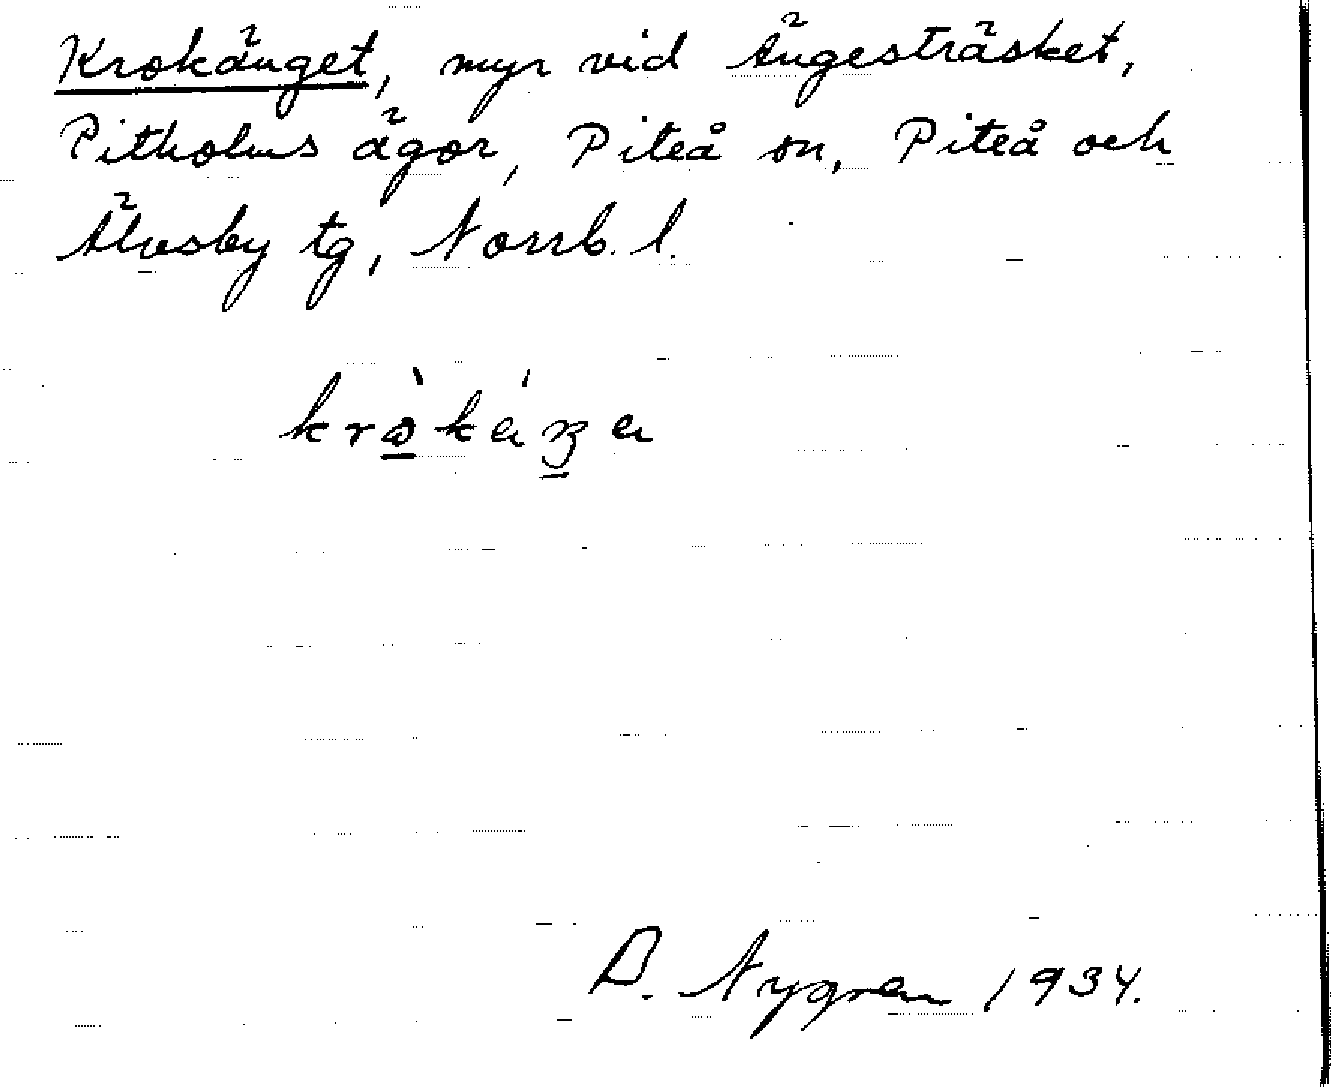 Krokänget, myr vid Ängesträsket,
Pitholms ägor, Piteå sn, Piteå och
Älvsby tg, Norrb. l.
D. Nygren 1934.